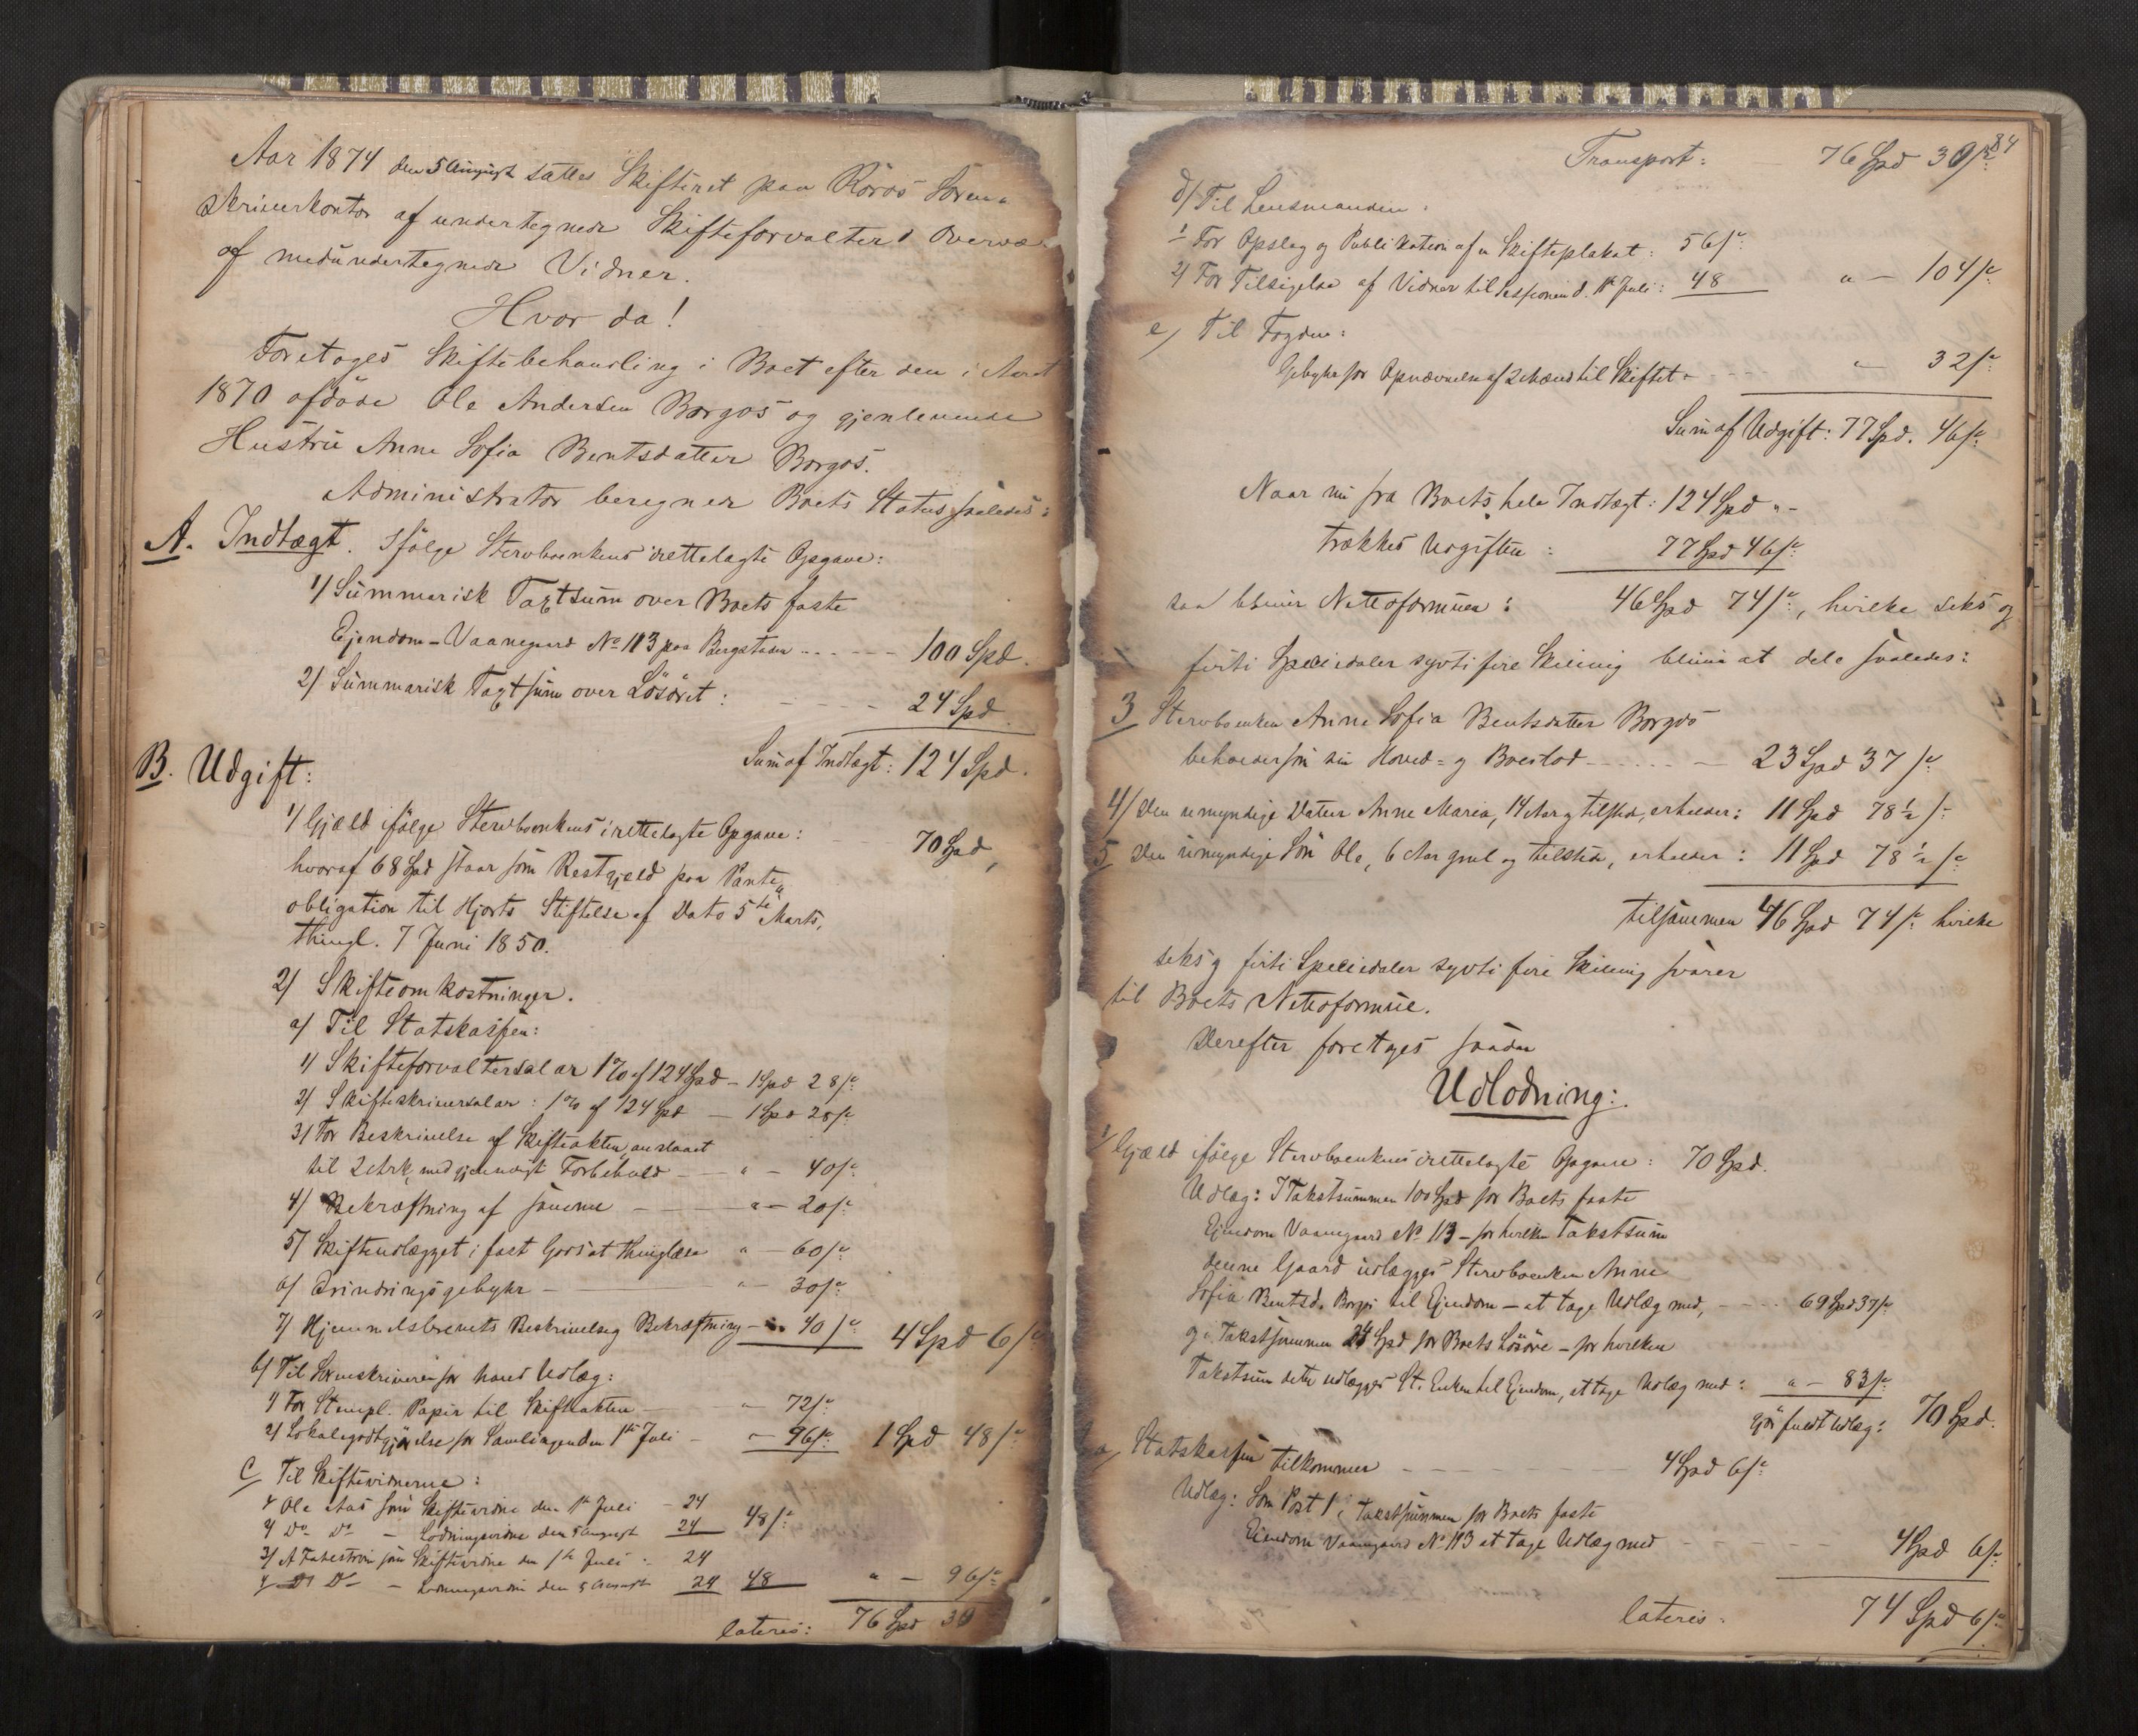 Aar 1874 den 5 August sattes Skifteret paa Röros Soren-
skriverkontor af undertegnede Skifteforvalter i Overvæ-
af medundertegnede Vidner.
Hvor da!
Foretoges Skiftebehandling i Boet efter den i Aaret
1870 afdöde Ole Andersen Borgos og gjenlevende
Hustru Anne Sofia Bentsdatter Borgos.
Administrator beregnede Boets Status saaledes:
A. Indtægt. Ifölge Stervboenkens irettelagte Opgave:
1) Summarisk Taxtsum over Boets faste
Ejendom - Vaanegaard No 113 paa Bergstaden ------ 100 Spd.
2) Summarisk Taxtsum over Lösöret: ---- 24 Spd
Sum af Indtægt: 124 Spd.
B. Udgift:
1) Gjæld ifölge Stervboenkens irettelagte Opgave: 70 Spd,
hvoraf 68 Spd staar som Restgjeld paa Pante-
obligation til Hjorts Stiftelse af Dato 5te Marts,
thingl. 7 Juni 1850.
2) Skifteomkostninger.
a) Til Statskassen:
1) Skifteforvaltersalar 1% af 124 Spd - 1 Spd 28 s:
2) Skifteskriversalar: 1% af 124 Spd - 1 Spd 28 s:
3) For Beskrivelse af Skifteakten, anslaaet
til 2 Ark, med gjensigt Forbehold - " - 40 s:
4) Bekræftning af samme - " - 20 s:
5) Skifteudlægget i fast Gods at thinglæse " - 60 s:
6) Erindringsgebyhr - " - 30 s:
7) Hjemmelsbrevets Beskrivelse og Bekræftning - " - 40 s: 4 Spd 6 s:
b) Til Sorenskriveren for hans Udlæg:
1) For Stempl. Papir til Skifteakten - " 72 s:
2) Lokalegodtgjörelse for Samlingen den 1ste Juli - " - 96 s: 1 Spd 48 s:
C) Til Skiftevidnerne:
1) Ole Aas som Skiftevidne den 1ste Juli - 24
2) Do Do - Lodningsvidne den 5 August 24 48 s:
3) A som Skiftevidne den 1ste Juli : 24
4) Do Do - Lodningsvidne den 5 August 24 48 " - 96 s:
lateris: 76 Spd 30
84
Transport: 76 Spd 30 s:
d) Til Lensmanden:
1 For Opslag og Publikation af en Skifteplakat: 56 s:
2) For Tilsigelse af Vidner til Sessionen d. 1ste Juli: 48 " - 104 s:
e) Til Fogden:
Gebyhr for Opnævnelse af 2 Mænd til Skiftet - - " 32 s:
Sum af Udgift: 77 Spd. 46 s:
Naar nu fra Boets hele Indtægt: 124 Spd " -
trækkes Udgiften: 77 Spd 46 s:
saa bliver Nettoformuen: 46 Spd 74 s:, hvilke seks og
firti Speciedaler sytti fire Skilling bliver at dele saaledes:
3 Stervboenken Anne Sofia Bentsdatter Borgos
beholder som sin Hoved- og Boeslod ------ 23 Spd 37 s:
4) Den umyndige Datter Anne Maria, 14 Aar og tilstede, erholder: 11 Spd 78 1/2 s:
5 Den umyndige Sön Ole, 6 Aar gml og tilstede, erholder: 11 Spd 78 1/2 s:
tilsammen 46 Spd 74 s: hvilke
seks og firti Speciedaler sytti fire Skilling svarer
til Boets Nettoformue.
Derefter foretoges saadan
Udlodning:
1) Gjæld ifölge Stervboenkens irettelagte Opgave: 70 Spd.
Udlæg: I Takstsummen 100 Spd for Boets faste
Ejendom Vaanegaard No 113 - for hvilken Takstsum
denne Gaard udlægges Stervboenken Anne
Sofia Bentsd. Borgos til Ejendom - at tage Udlæg med, --- 69 Spd 37 s:
og i Takstsummen 24 Spd for Boets Lösöre - for hvilken
Takstsum dette udlægges St. Enken til Ejendom, at tage Udlæg med: " - 83 s:
gjör fuldt Udlæg: 70 Spd.
a) Statskassen tilkommer ------ 4 Spd 6 s:
Udlæg: Som Post 1 i Takstsummen for Boets faste
Ejendom Vaanegaard No 113 at tage Udlæg med ------ 4 Spd 6 s:
lateris: 74 Spd 6 s: